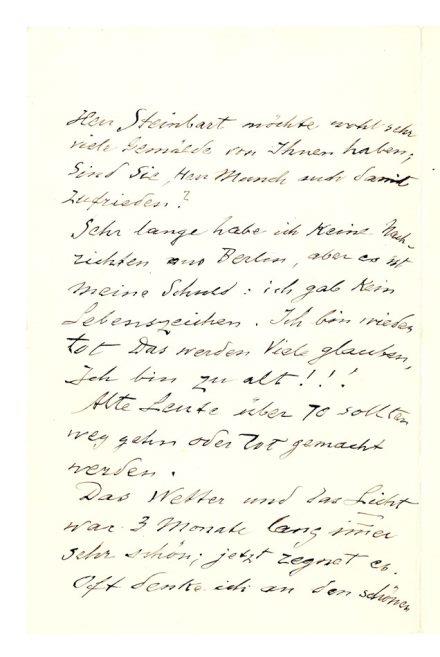 Herr Steinbart möchte wohl sehr
viele Gemälde von Ihnen haben;
Sind Sie, Herr Munch auch damit
zufrieden?
Sehr lange habe ich Keine Nach-
richten aus Berlin, aber es ist
meine Schuld: ich gab Kein
Lebenszeichen. Ich bin wieder
tot Das werden Viele glauben,
Ich bin zu alt!!!
Alte Leute über 70 sollten
weg gehn oder tot gemacht
werden.
Das Wetter und das Licht
war 3 Monate lang immer
sehr schön; jetzt regnet es.
Oft denke ich an den schönen